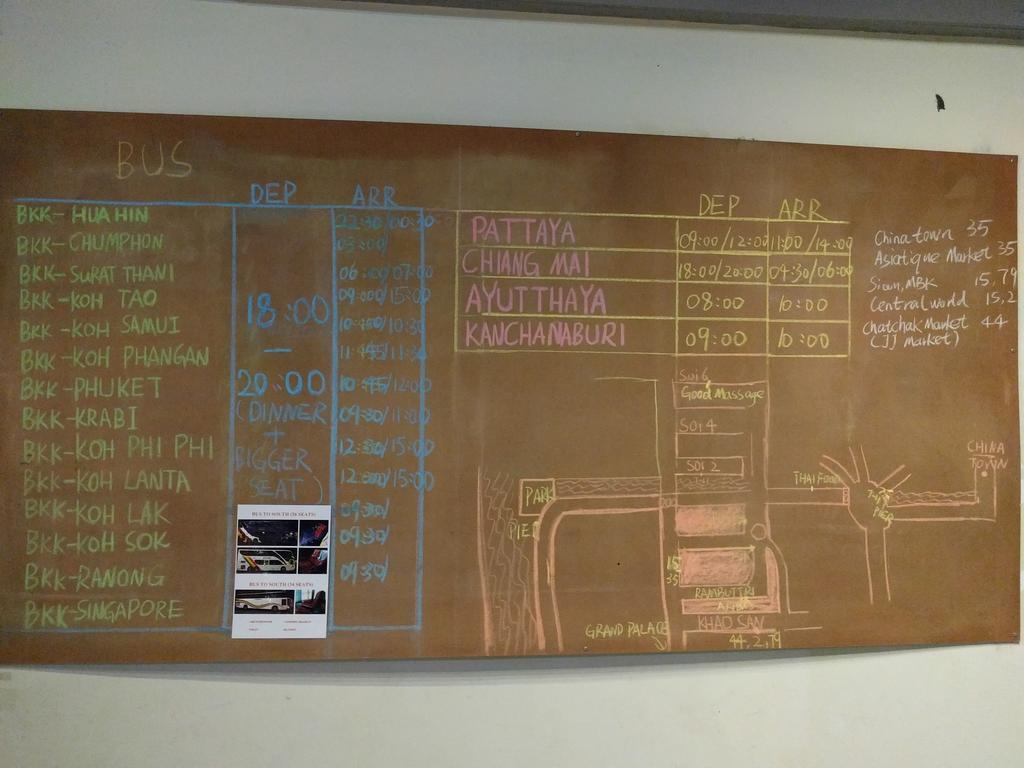 BUS
DEP ARR
BKK-HUA HIN 22:30/00:30
BKK-CHUMPHON 03:00/
BKK-SURAT THANI 06:00/07:00
BKK-KOH TAO 09:00/15:00
BKK-KOH SAMUI /10:30
BKK-KOH PHANGAN
BKK-PHUKET 10:45/12:00
BKK-KRABI 09:30/11:00
BKK-KOH PHI PHI 12:30/15:00
BKK-KOH LANTA 12:00/15:00
BKK-KOH LAK 09:30/
BKK-KOH SOK 09:30/
BKK-RANONG 09:30/
BKK-SINGAPORE
18:00
—
20:00
(DINNER
+
BIGGER
SEAT)
BUS TO SOUTH (36 SEATS)
BUS TO SOUTH (34 SEATS)
DEP ARR
PATTAYA 09:00/12:00 11:00/14:00
CHIANG MAI 18:00/20:00 04:30/06:00
AYUTTHAYA 08:00 10:00
KANCHANABURI 09:00 10:00
China town 35
Asiatique Market 35
Siam, MBK 15,79
Central world 15,2
Chatchak Market 44
(JJ Market)
Soi 6
Good Massage
Soi 4
Soi 2
THAI FOOD
CHINA
TOWN
PARK
PIER
15
35
RAMBUTTRI
KHAO SAN
GRAND PALACE
44,2,79